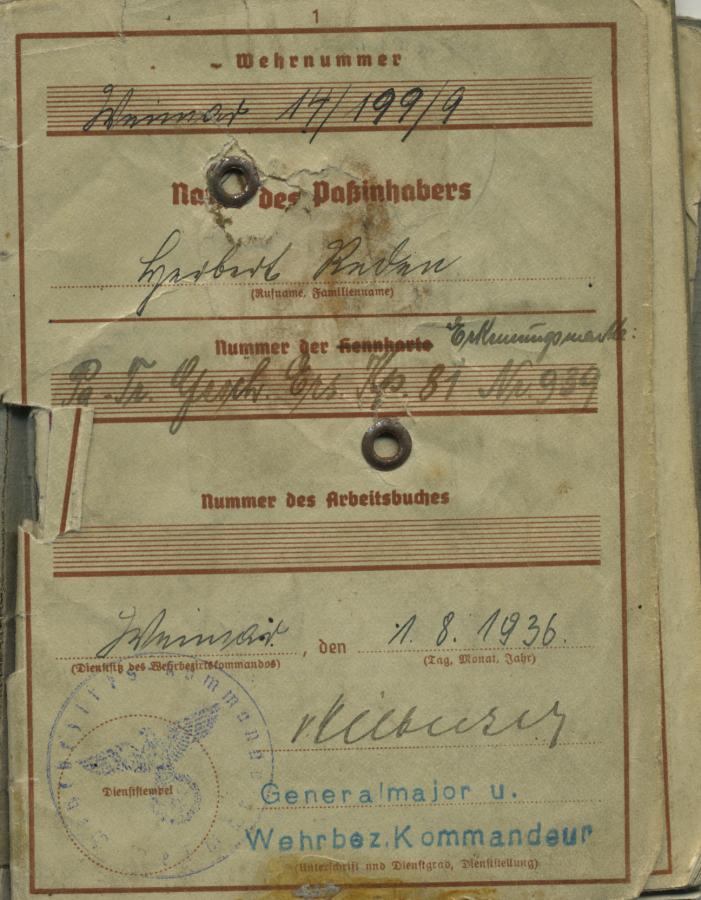 1
Wehrnummer
Weimar 14/199/9
Name des Paßinhabers
Herbert Reden
(Rufname, Familienname)
Nummer der Kennkarte Erkennungsmarke:
Pz.-Tr. Gesch. Ers. Kp. 81 Nr. 939
Nummer des Arbeitsbuches
Weimar, den 1. 8. 1936.
(Dienstsitz des Wehrbezirkskommandos) (Tag, Monat, Jahr)
Dienststempel
Generalmajor u.
Wehrbez.Kommandeur
(Unterschrift und Dienstgrad, Dienststellung)